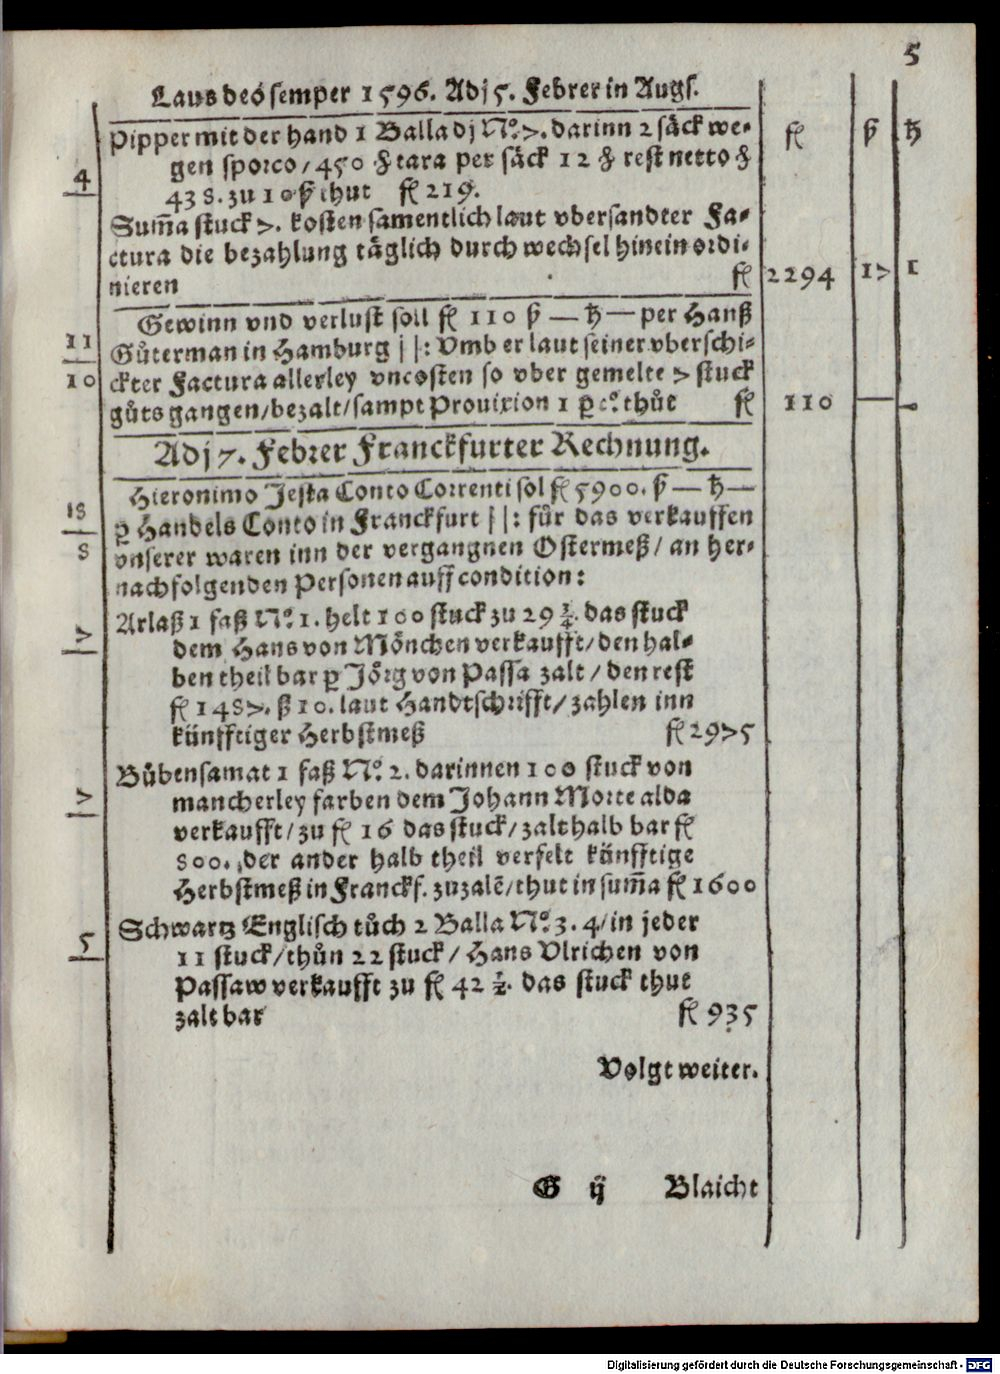 5
Laus deo semper 1596. Adj 5. Febrer in Augs.
Pipper mit der hand 1 Balla dj No. 7. darinn 2 säck we-
gen sporco / 450 ℔ tara per säck 12 ℔ rest netto ℔
438. zu 10 ß thut fl 219.
4
fl ß ₰
Sum̄a stuck 7. kosten samentlich laut vbersandter Fa-
ctura die bezahlung täglich durch wechsel hinein ordi-
nieren fl 2294 17 1
Gewinn vnd verlust soll fl 110 ß — ₰ — per Hanß
11
Gůterman in Hamburg ||: Vmb er laut seiner vberschi-
10
ckter Factura allerley vncosten so vber gemelte 7 stuck
gůts gangen / bezalt / sampt Prouixion 1 p co. thůt fl 110 — —
Adj 7. Febrer Franckfurter Rechnung.
Hieronimo Jesta Conto Correnti sol fl 5900. ß — ₰ —
18
p Handels Conto in Franckfurt ||: fůr das verkauffen
8
vnserer waren inn der vergangnen Ostermeß / an her-
nachfolgenden Personen auff condition:
Arlaß 1 faß No. 1. helt 100 stuck zu 29 ¾. das stuck
7
dem Hans von Mönchen verkaufft / den hal-
ben theil bar p Jörg von Passa zalt / den rest
fl 1487. ß 10. laut Handtschrifft / zahlen inn
künfftiger Herbstmeß fl 2975
Bůbensamat 1 faß No. 2. darinnen 100 stuck von
7
mancherley farben dem Johann Morte alda
verkaufft / zu fl 16 das stuck / zalt halb bar fl
800. der ander halb theil verfelt künfftige
Herbstmeß in Franckf. zuzalē / thut in sum̄a fl 1600
Schwartz Englisch tůch 2 Balla No. 3. 4 / in jeder
5
11 stuck / thůn 22 stuck / Hans Vlrichen von
Passaw verkaufft zu fl 42 ½. das stuck thut
zalt bar fl 935
Volgt weiter.
G ij Blaicht
Digitalisierung gefördert durch die Deutsche Forschungsgemeinschaft - DFG